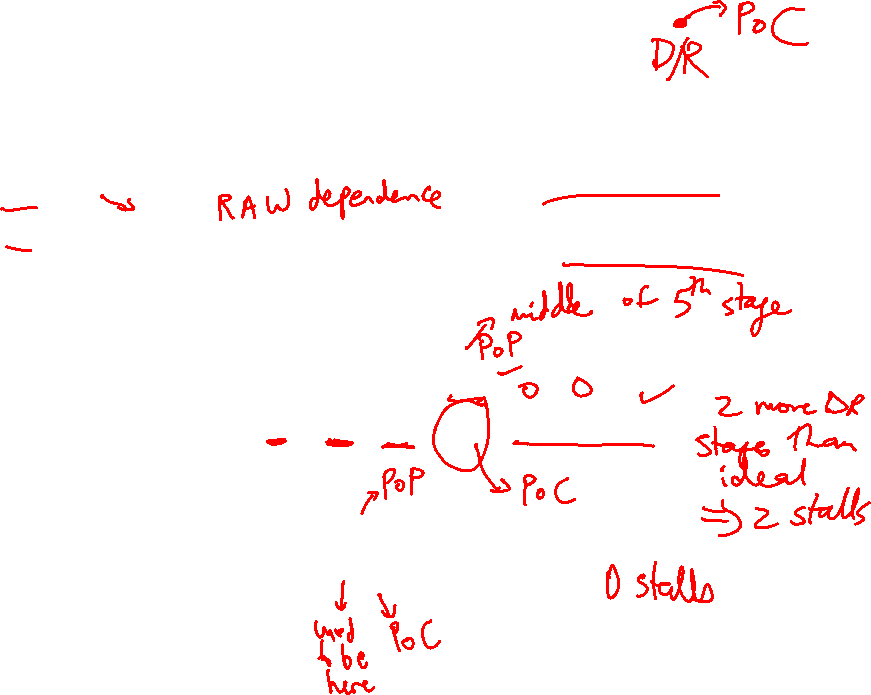 PoC
D/R
RAW dependence
middle of 5th stage
PoP
0 0 ✓
2 more DR
stages than
ideal
⇒ 2 stalls
PoP
PoC
0 stalls
used
to be
here
PoC